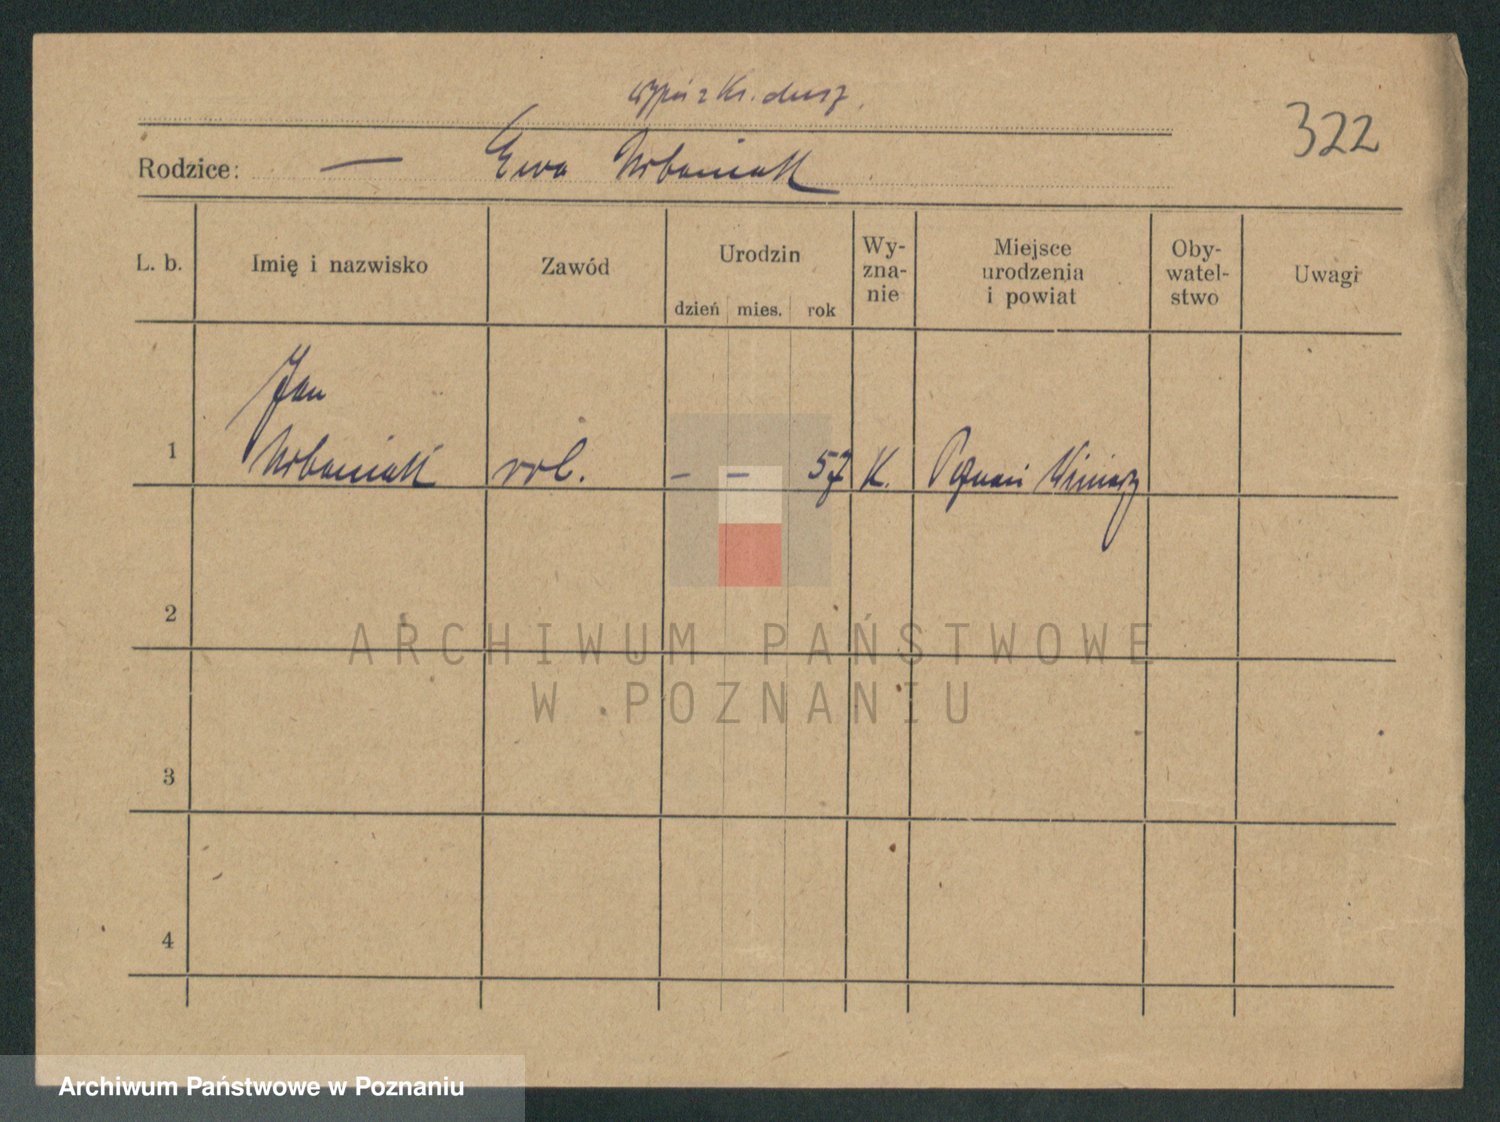 wypis z Ks. dusz.
322
Rodzice: — Ewa Urbaniak
L. b. Imię i nazwisko Zawód Urodzin Wy-
zna-
nie Miejsce
urodzenia
i powiat Oby-
watel-
stwo Uwagi
dzień mies. rok
Jan
1 Urbaniak rol. – – 57 K. Poznań Winiary
2
3
4
ARCHIWUM PAŃSTWOWE
W POZNANIU
Archiwum Państwowe w Poznaniu